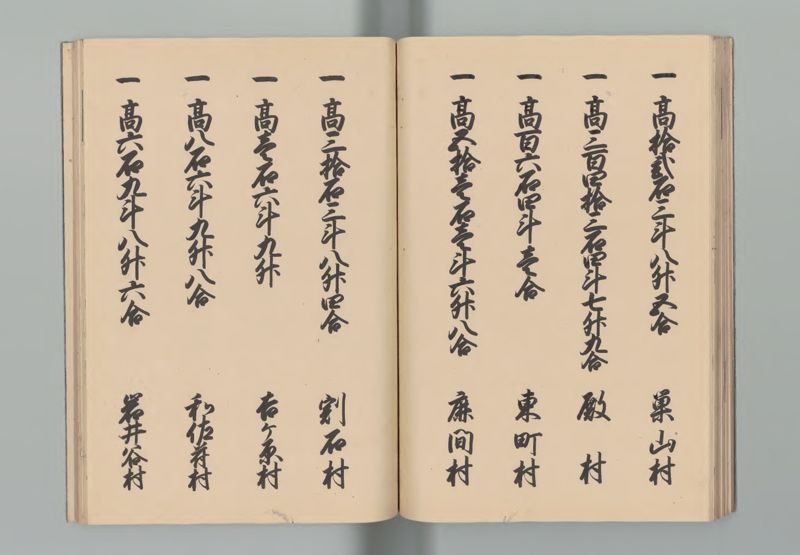 一 高拾弐石三斗八升五合 巣山村
一 高三百四拾三石四斗七升九合 殿村
一 高百六石四斗壱合 東町村
一 高五拾壱石壱斗六升八合 麻間村
一 高三拾石三斗八升四合 割石村
一 高壱石六斗九升 吉ケ原村
一 高八石六斗九升八合 和佐府村
一 高六石九斗八升六合 岩井谷村